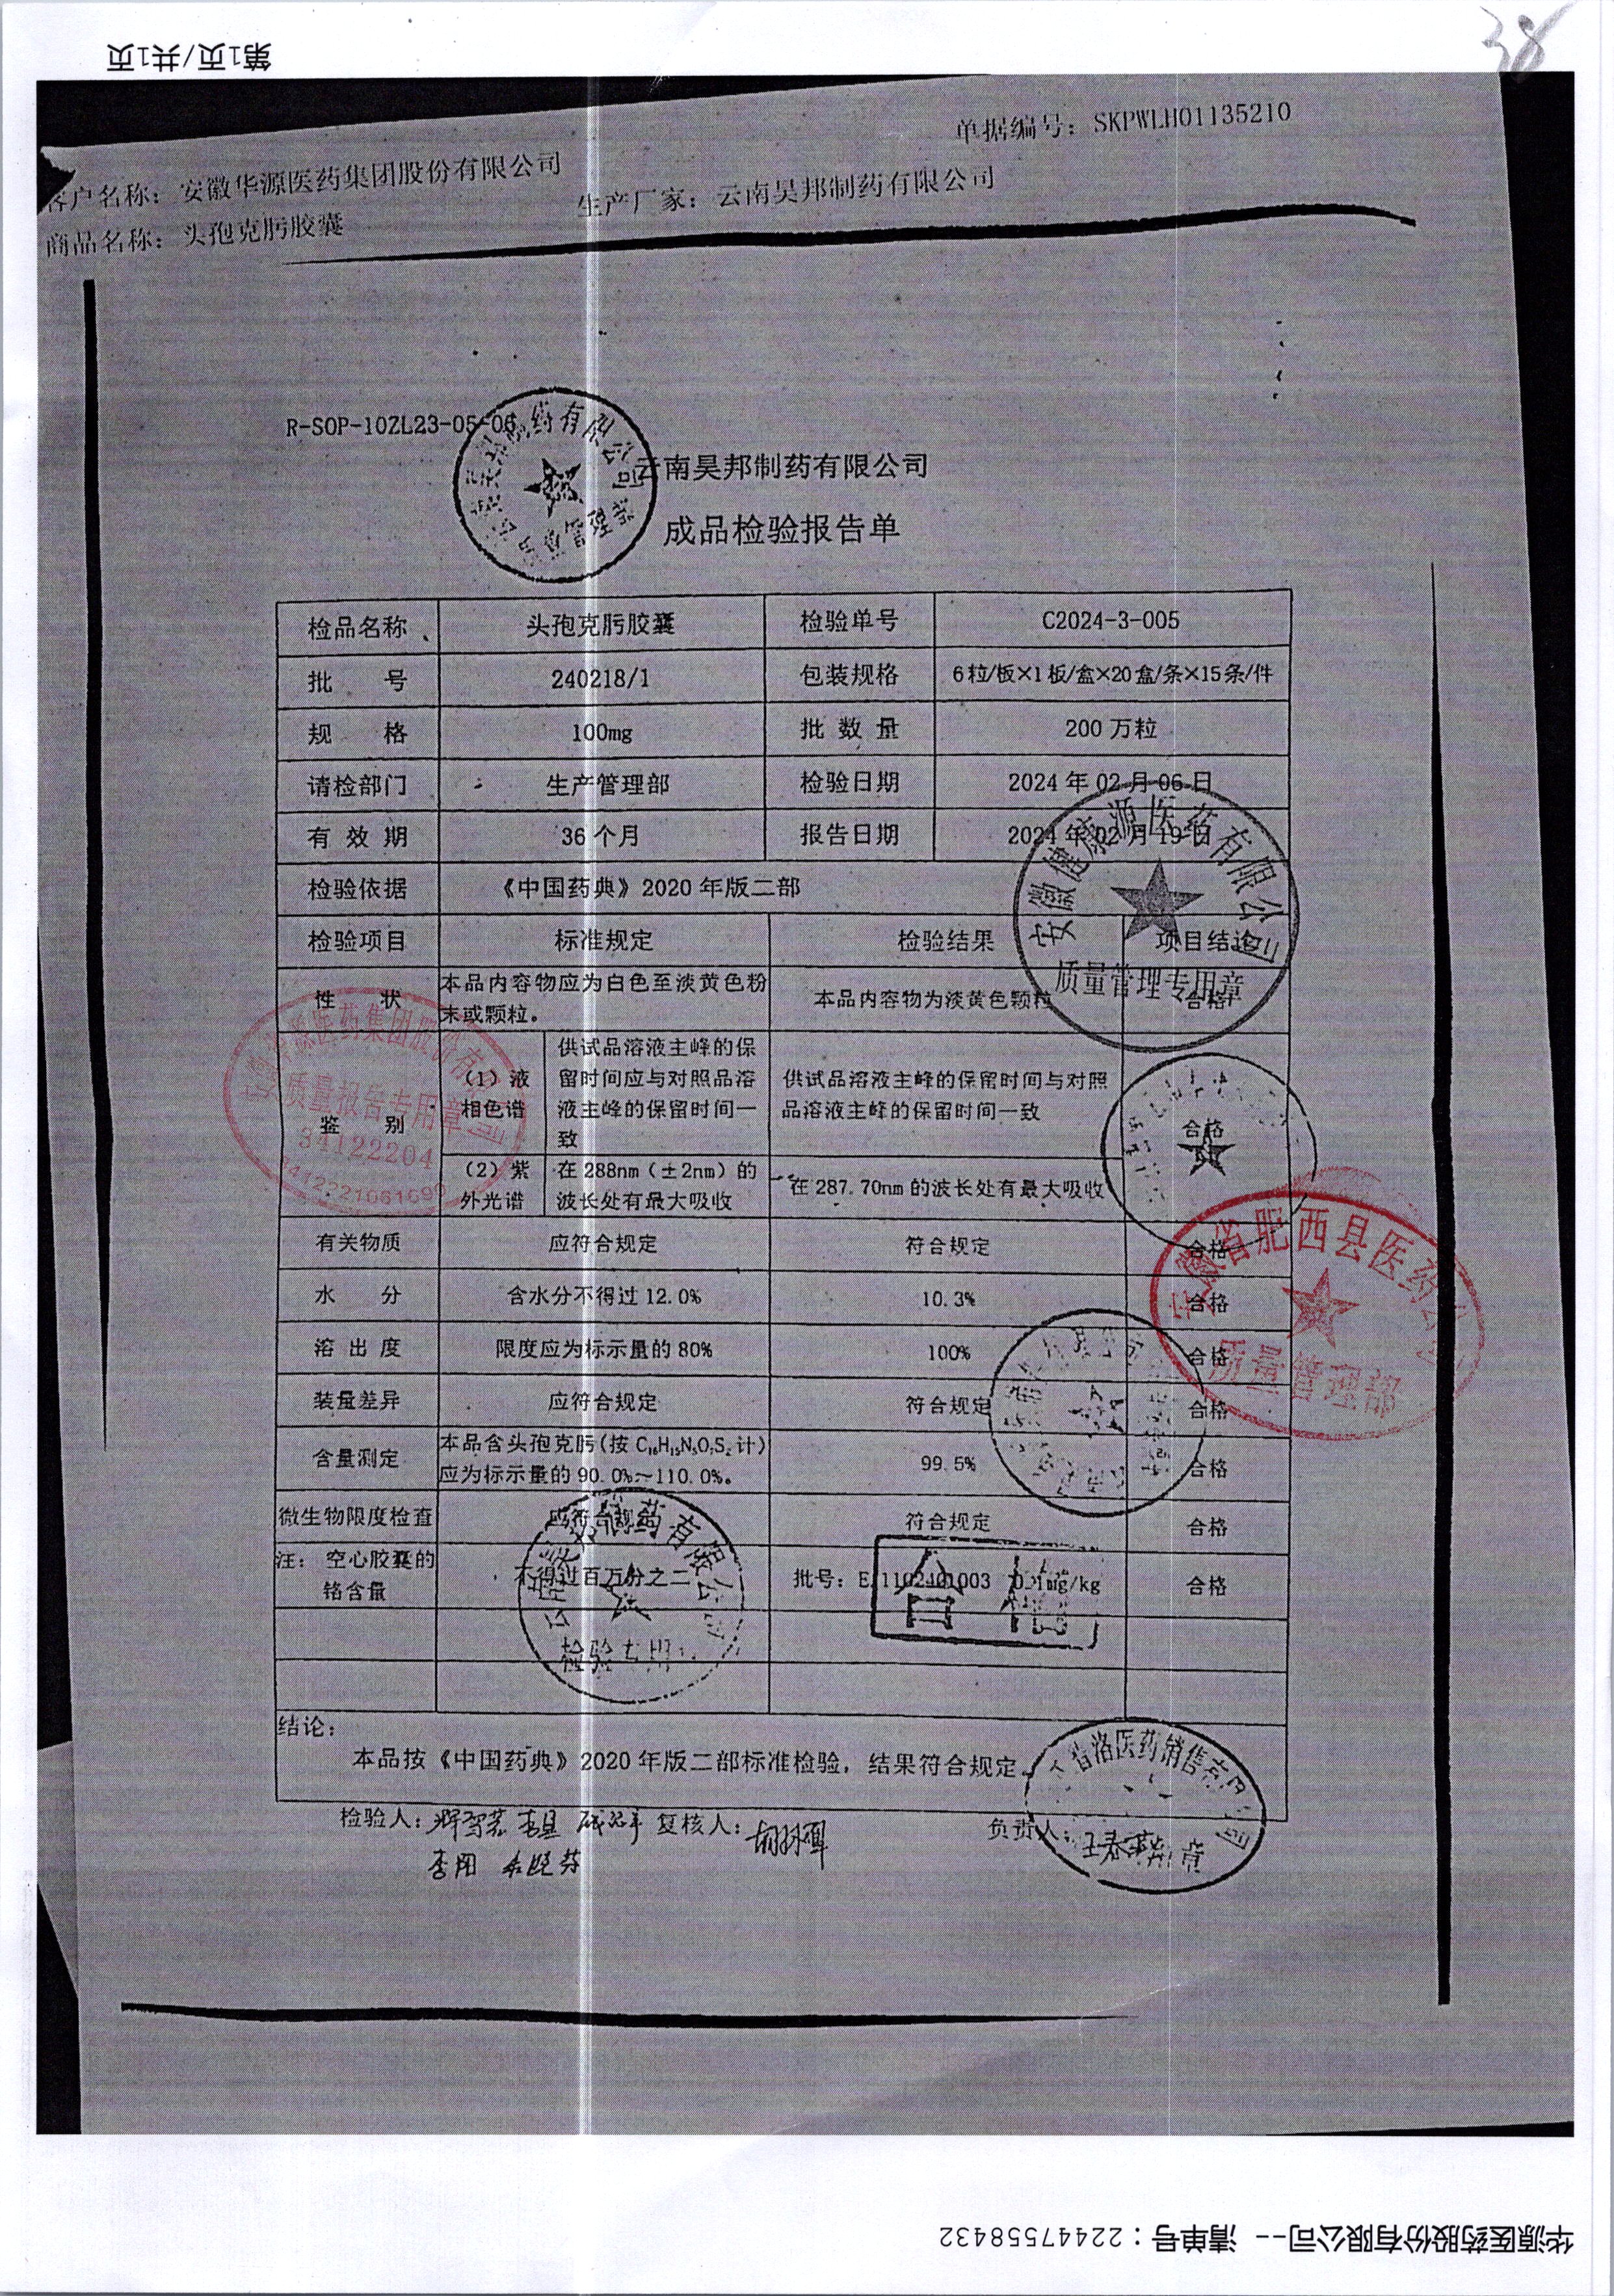 38
第1页/共1页
单据编号：SKPWLH01135210
客户名称：安徽华源医药集团股份有限公司
生产厂家：云南昊邦制药有限公司
商品名称：头孢克肟胶囊
R-SOP-10ZL23-05-06
云南昊邦制药有限公司
成品检验报告单
检品名称 头孢克肟胶囊 检验单号 C2024-3-005
批 号 240218/1 包装规格 6粒/板×1板/盒×20盒/条×15条/件
规 格 100mg 批数量 200万粒
请检部门 生产管理部 检验日期 2024年02月06日
有效期 36个月 报告日期 2024年02月19日
检验依据 《中国药典》2020年版二部
检验项目 标准规定 检验结果 项目结论
性 状 本品内容物应为白色至淡黄色粉
末或颗粒。 本品内容物为淡黄色颗粒 合格
鉴 别 （1）液
相色谱 供试品溶液主峰的保
留时间应与对照品溶
液主峰的保留时间一
致 供试品溶液主峰的保留时间与对照
品溶液主峰的保留时间一致 合格
（2）紫
外光谱 在288nm（±2nm）的
波长处有最大吸收 在287.70nm的波长处有最大吸收
有关物质 应符合规定 符合规定 合格
水 分 含水分不得过12.0% 10.3% 合格
溶出度 限度应为标示量的80% 100% 合格
装量差异 应符合规定 符合规定 合格
含量测定 本品含头孢克肟(按C₁₆H₁₅N₅O₇S₂计)
应为标示量的90.0%～110.0%。 99.5% 合格
微生物限度检查 应符合规定 符合规定 合格
注：空心胶囊的
铬含量 不得过百万分之二 批号： mg/kg 合格
合格
结论：
本品按《中国药典》2020年版二部标准检验，结果符合规定
检验人： 复核人： 负责人：
安徽健康源医药有限公司
质量管理专用章
质量报告专用章
34122204
安徽省肥西县医药公司
质量管理部
华源医药股份有限公司-- 清单号：22447558432